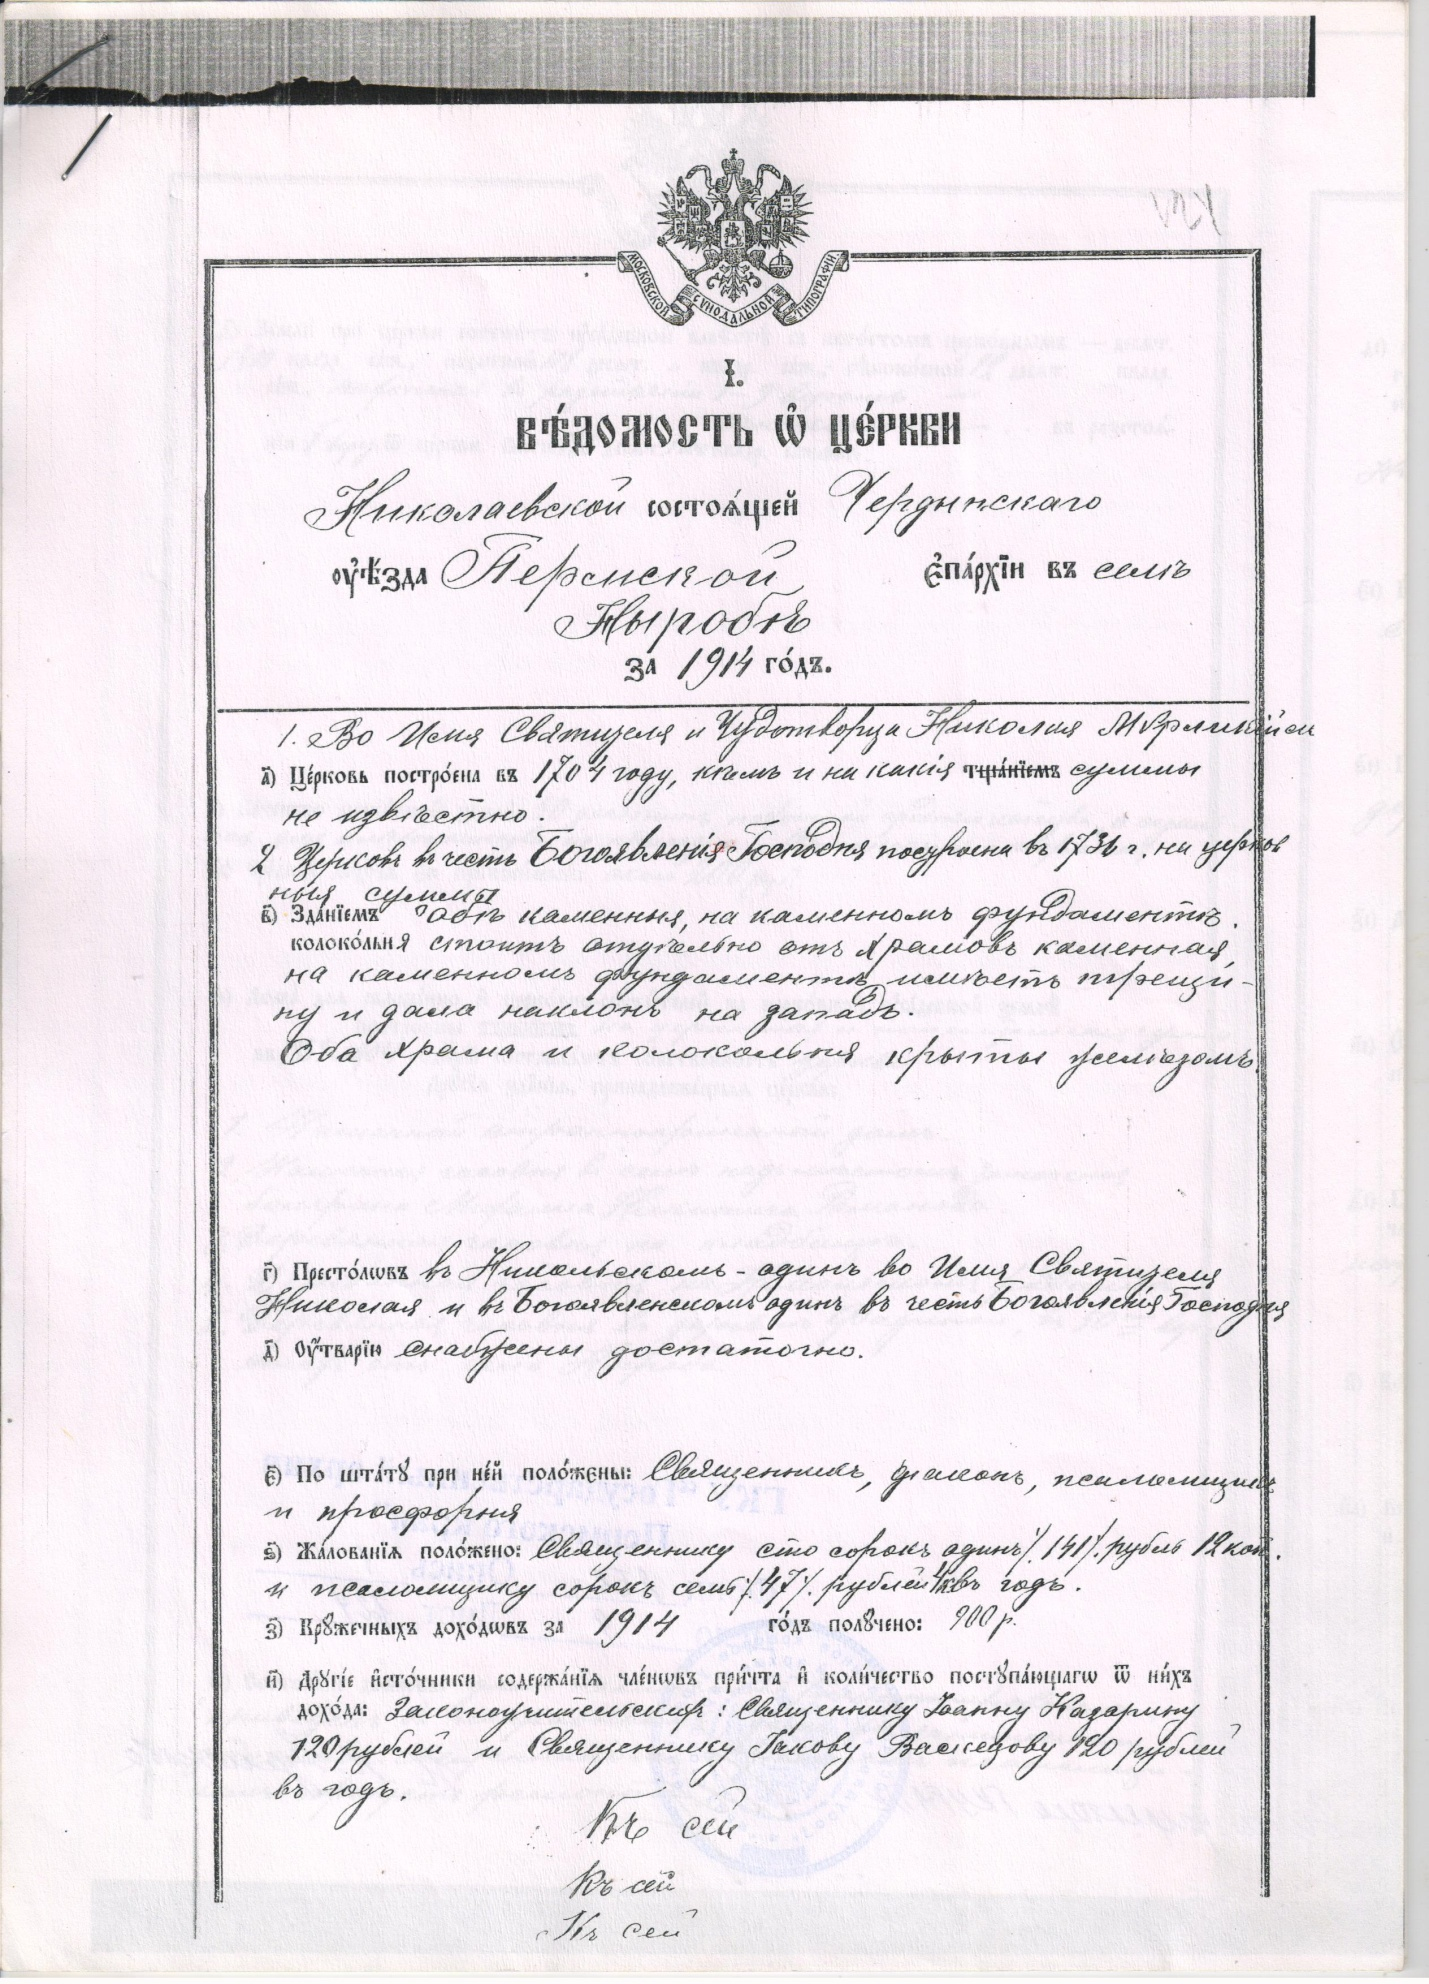 МОСКОВСКОЙ СУНОДАЛЬНОЙ ТИПОГРАФІИ
І.
ВѢ́ДОМОСТЬ Ѽ ЦЕ́РКВИ
Николаевской состоѧ́щей Чердынскаго
ᲂу҆ѣ́зда Пермской є҆па́рхїи въ селѣ
Ныробѣ
за 1914 го́дъ.
1. Во Имя Святителя и Чудотворца Николая Мѵрликійскаго
а҃) Це́рковь постро́ена въ 1704 году, кѣмъ и на какія тща́нїемъ суммы
не извѣстно.
2 Церковь въ честь Богоявленія Господня построена въ 1736 г. на церков
ныя суммы
в҃) Зда́нїемъ обѣ каменныя, на каменномъ фундаментѣ.
колоко́льня стоитъ отдѣльно отъ храмовъ каменная,
на каменномъ фундаментѣ имѣетъ трещи-
ну и дала наклонъ на западъ.
Оба храма и колокольня крыты желѣзомъ.
г҃) Престо́лѡвъ въ Никольскомъ - одинъ во Имя Святителя
Николая и въ Богоявленскомъ одинъ въ честь Богоявленія Господня
д҃) Оу҆́тварїю снабжены достаточно.
є҃) По шта́тꙋ при не́й поло́жены: Священникъ, діаконъ, псаломщикъ
и просфорня
ѕ҃) Жа́лованїѧ поло́жено: Священнику сто сорокъ одинъ /.141/. рубль 12 коп.
и псаломщику сорокъ семь /.47/. рублей 4 к. въ годъ.
з҃) Крꙋ́жечныхъ дохо́дѡвъ за 1914 го́дъ полꙋ́чено: 900 р.
и҃) Дрꙋгі́е и҆сто́чники содержа́нїѧ чле́нѡвъ при́чта и҆ коли́чество постꙋпа́ющагѡ ѿ ни́хъ
дохо́да: Законоучительскія: Священнику Іоанну Казарину
120 рублей и Священнику Іакову Васнецову 120 рублей
въ годъ.
Къ сей
Къ сей
Къ сей